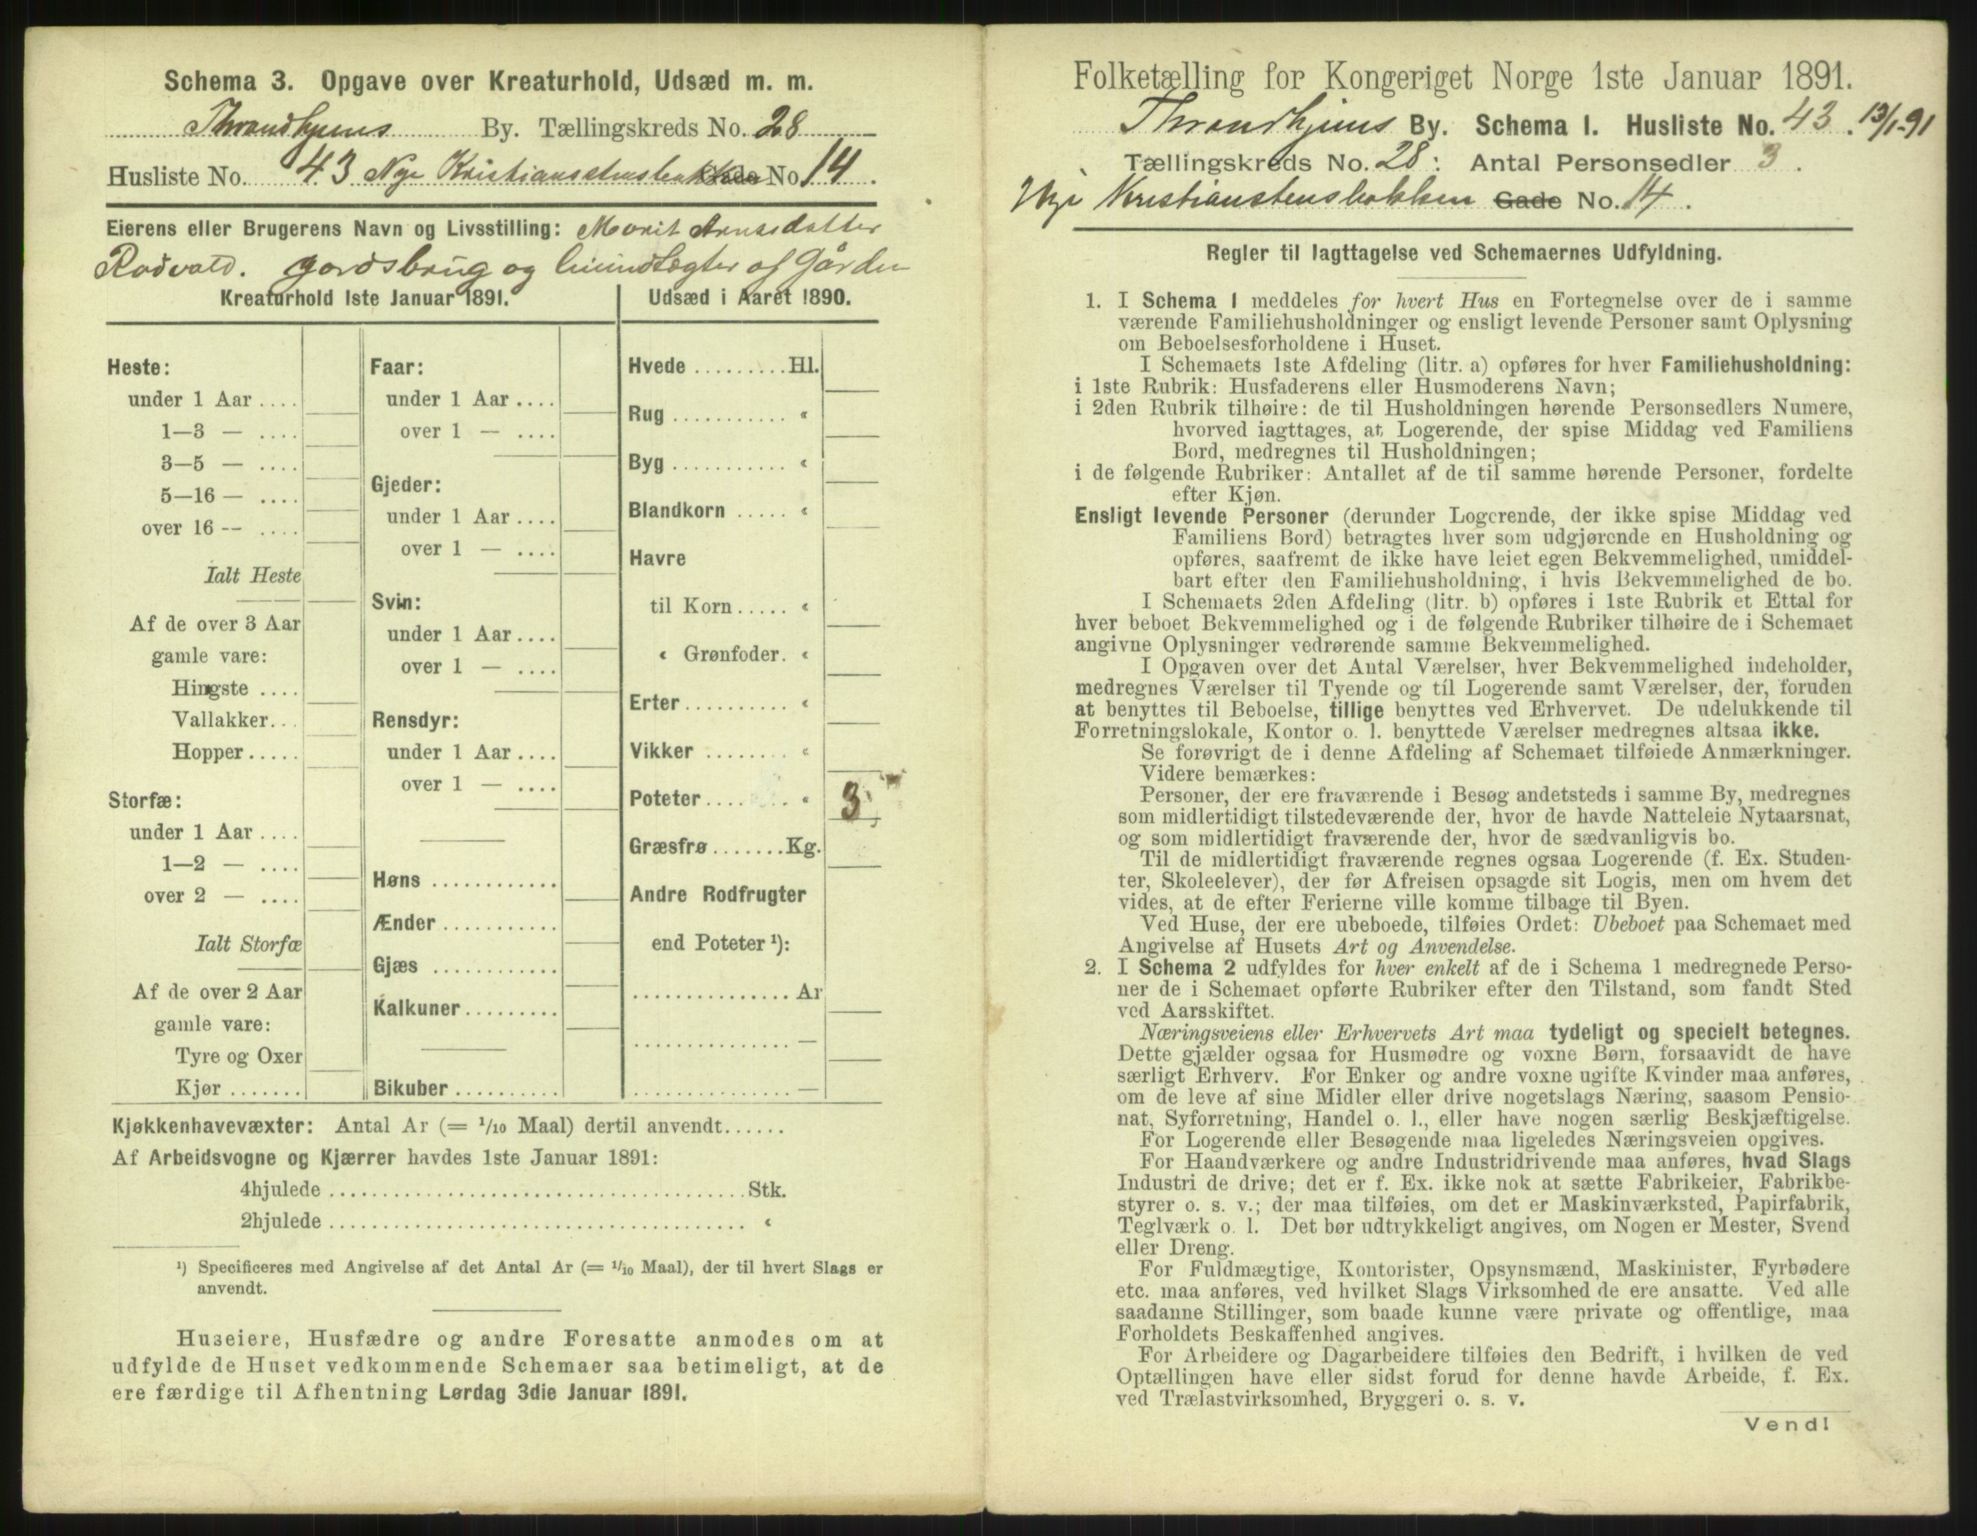 Schema 3. Opgave over Kreaturhold, Udsæd m. m.
Throndhjems By. Tællingskreds No. 28
Husliste No. 43 Nye Kristianstensbakken Gade No 14.
Eierens eller Brugerens Navn og Livsstilling: Marit Arnsdatter
Rødvald. gårdsbrug og Indtægter af Gården
Kreaturhold 1ste Januar 1891.
Heste:
under 1 Aar ....
1—3 — ....
3—5 — ....
5—16 — ....
over 16 -- ....
Ialt Heste
Af de over 3 Aar
gamle vare:
Hingste ....
Vallakker...
Hopper.....
Storfæ:
under 1 Aar ....
1—2 — ....
over 2 — ....
Ialt Storfæ
Af de over 2 Aar
gamle vare:
Tyre og Oxer
Kjør .......
Faar:
under 1 Aar ....
over 1 — ....
Gjeder:
under 1 Aar ....
over 1 — ....
Svin:
under 1 Aar ....
over 1 — ....
Rensdyr:
under 1 Aar ....
over 1 — ....
Høns ............
Ænder...........
Gjæs ............
Kalkuner.........
Bikuber ..........
Udsæd i Aaret 1890.
Hvede .........Hl.
Rug ........... «
Byg ........... «
Blandkorn ..... «
Havre
til Korn..... «
« Grønfoder. «
Erter.......... «
Vikker ........ «
Poteter........ « 3
Græsfrø.......Kg.
Andre Rodfrugter
end Poteter ¹):
............... Ar
............... —
............... —
Kjøkkenhavevæxter: Antal Ar (= 1/10 Maal) dertil anvendt......
Af Arbeidsvogne og Kjærrer havdes 1ste Januar 1891:
4hjulede ........................................Stk.
2hjulede ........................................ «
¹) Specificeres med Angivelse af det Antal Ar (= 1/10 Maal), der til hvert Slags er
anvendt.
Huseiere, Husfædre og andre Foresatte anmodes om at
udfylde de Huset vedkommende Schemaer saa betimeligt, at de
ere færdige til Afhentning Lørdag 3die Januar 1891.
Folketælling for Kongeriget Norge 1ste Januar 1891.
Throndhjems By. Schema I. Husliste No. 43. 13/1-91
Tællingskreds No. 28: Antal Personsedler 3.
Nye Kristianstensbakken Gade No. 14.
Regler til Iagttagelse ved Schemaernes Udfyldning.
1. I Schema 1 meddeles for hvert Hus en Fortegnelse over de i samme
værende Familiehusholdninger og ensligt levende Personer samt Oplysning
om Beboelsesforholdene i Huset.
I Schemaets 1ste Afdeling (litr. a) opføres for hver Familiehusholdning:
i 1ste Rubrik: Husfaderens eller Husmoderens Navn;
i 2den Rubrik tilhøire: de til Husholdningen hørende Personsedlers Numere,
hvorved iagttages, at Logerende, der spise Middag ved Familiens
Bord, medregnes til Husholdningen;
i de følgende Rubriker: Antallet af de til samme hørende Personer, fordelte
efter Kjøn.
Ensligt levende Personer (derunder Logerende, der ikke spise Middag ved
Familiens Bord) betragtes hver som udgjørende en Husholdning og
opføres, saafremt de ikke have leiet egen Bekvemmelighed, umiddel-
bart efter den Familiehusholdning, i hvis Bekvemmelighed de bo.
I Schemaets 2den Afdeling (litr. b) opføres i 1ste Rubrik et Ettal for
hver beboet Bekvemmelighed og i de følgende Rubriker tilhøire de i Schemaet
angivne Oplysninger vedrørende samme Bekvemmelighed.
I Opgaven over det Antal Værelser, hver Bekvemmelighed indeholder,
medregnes Værelser til Tyende og til Logerende samt Værelser, der, foruden
at benyttes til Beboelse, tillige benyttes ved Erhvervet. De udelukkende til
Forretningslokale, Kontor o. l. benyttede Værelser medregnes altsaa ikke.
Se forøvrigt de i denne Afdeling af Schemaet tilføiede Anmærkninger.
Videre bemærkes:
Personer, der ere fraværende i Besøg andetsteds i samme By, medregnes
som midlertidigt tilstedeværende der, hvor de havde Natteleie Nytaarsnat,
og som midlertidigt fraværende der, hvor de sædvanligvis bo.
Til de midlertidigt fraværende regnes ogsaa Logerende (f. Ex. Studen-
ter, Skoleelever), der før Afreisen opsagde sit Logis, men om hvem det
vides, at de efter Ferierne ville komme tilbage til Byen.
Ved Huse, der ere ubeboede, tilføies Ordet: Ubeboet paa Schemaet med
Angivelse af Husets Art og Anvendelse.
2. I Schema 2 udfyldes for hver enkelt af de i Schema 1 medregnede Perso-
ner de i Schemaet opførte Rubriker efter den Tilstand, som fandt Sted
ved Aarsskiftet.
Næringsveiens eller Erhvervets Art maa tydeligt og specielt betegnes.
Dette gjælder ogsaa for Husmødre og voxne Børn, forsaavidt de have
særligt Erhverv. For Enker og andre voxne ugifte Kvinder maa anføres,
om de leve af sine Midler eller drive nogetslags Næring, saasom Pensio-
nat, Syforretning, Handel o. l., eller have nogen særlig Beskjæftigelse.
For Logerende eller Besøgende maa ligeledes Næringsveien opgives.
For Haandværkere og andre Industridrivende maa anføres, hvad Slags
Industri de drive; det er f. Ex. ikke nok at sætte Fabrikeier, Fabrikbe-
styrer o. s. v.; der maa tilføies, om det er Maskinværksted, Papirfabrik,
Teglværk o. l. Det bør udtrykkeligt angives, om Nogen er Mester, Svend
eller Dreng.
For Fuldmægtige, Kontorister, Opsynsmænd, Maskinister, Fyrbødere
etc. maa anføres, ved hvilket Slags Virksomhed de ere ansatte. Ved alle
saadanne Stillinger, som baade kunne være private og offentlige, maa
Forholdets Beskaffenhed angives.
For Arbeidere og Dagarbeidere tilføies den Bedrift, i hvilken de ved
Optællingen have eller sidst forud for denne havde Arbeide, f. Ex.
ved Trælastvirksomhed, Bryggeri o. s. v.
Vend!